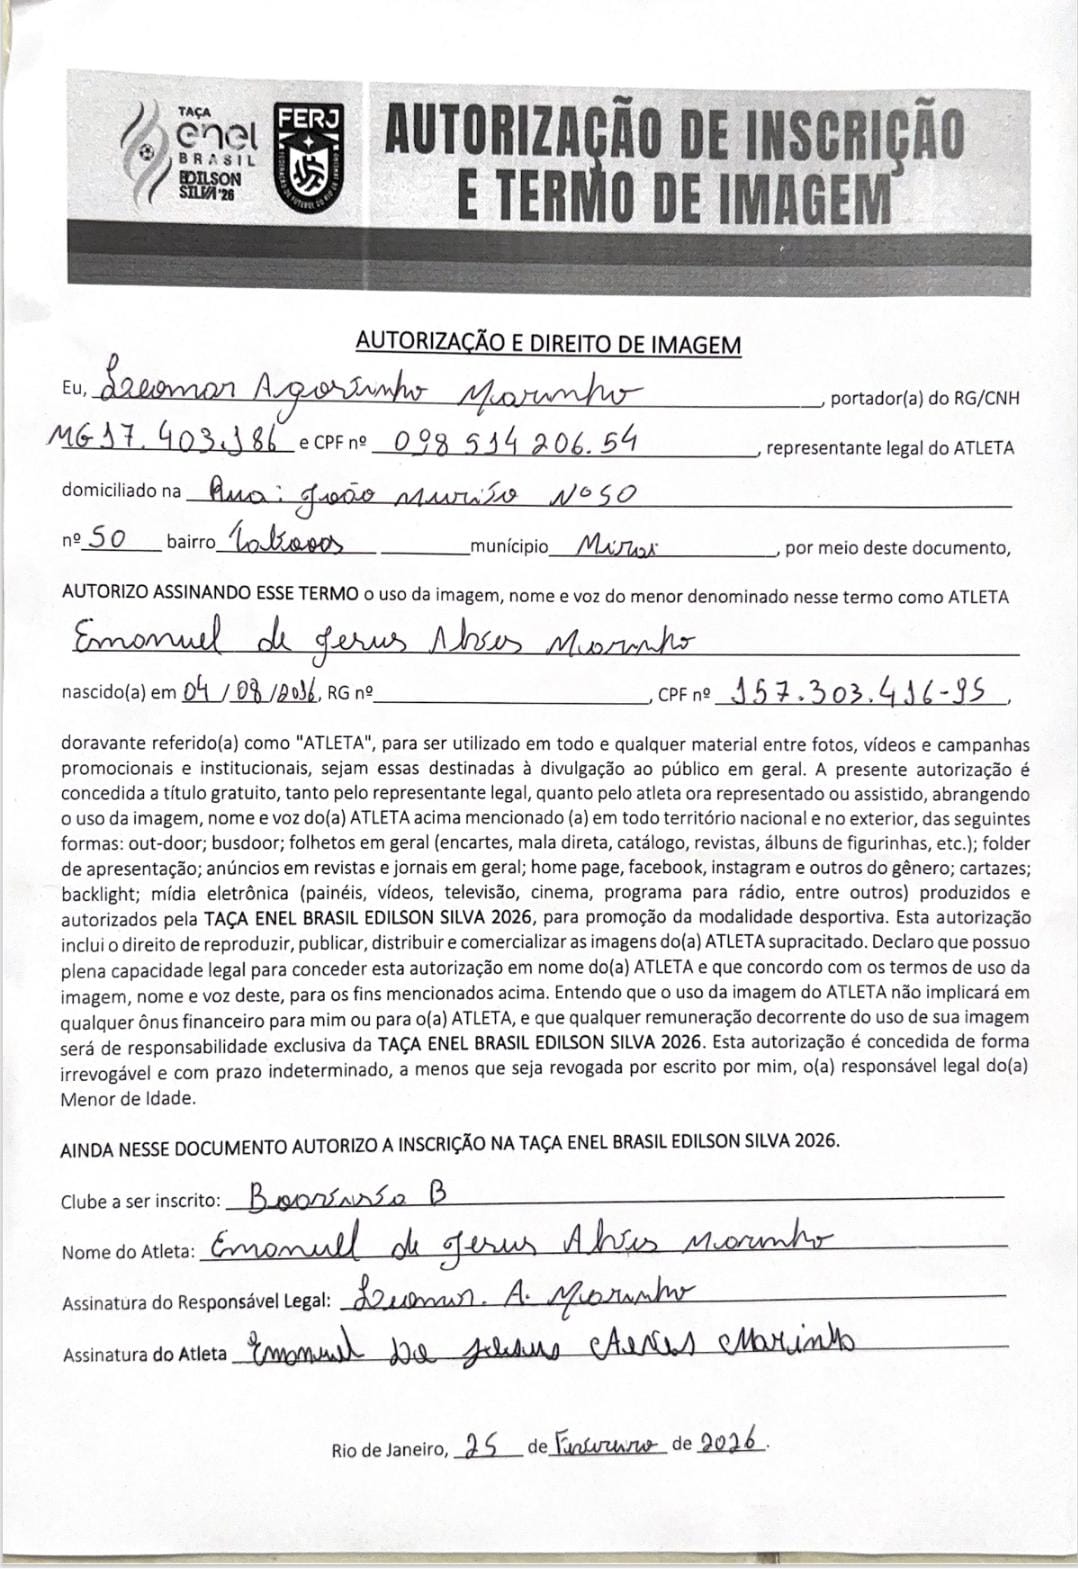 TAÇA
enel
BRASIL
EDILSON
SILVA '26
FERJ
AUTORIZAÇÃO DE INSCRIÇÃO
E TERMO DE IMAGEM
AUTORIZAÇÃO E DIREITO DE IMAGEM
Eu, Leomar Agostinho Marinho, portador(a) do RG/CNH
MG17.403.186 e CPF nº 098 514 206.54, representante legal do ATLETA
domiciliado na Rua: João Nº50
nº 50 bairro município Mirai, por meio deste documento,
AUTORIZO ASSINANDO ESSE TERMO o uso da imagem, nome e voz do menor denominado nesse termo como ATLETA
Emanuel de Jesus Alves Marinho
nascido(a) em 04/08/2016, RG nº, CPF nº 157.303.416-95,
doravante referido(a) como "ATLETA", para ser utilizado em todo e qualquer material entre fotos, vídeos e campanhas
promocionais e institucionais, sejam essas destinadas à divulgação ao público em geral. A presente autorização é
concedida a título gratuito, tanto pelo representante legal, quanto pelo atleta ora representado ou assistido, abrangendo
o uso da imagem, nome e voz do(a) ATLETA acima mencionado (a) em todo território nacional e no exterior, das seguintes
formas: out-door; busdoor; folhetos em geral (encartes, mala direta, catálogo, revistas, álbuns de figurinhas, etc.); folder
de apresentação; anúncios em revistas e jornais em geral; home page, facebook, instagram e outros do gênero; cartazes;
backlight; mídia eletrônica (painéis, vídeos, televisão, cinema, programa para rádio, entre outros) produzidos e
autorizados pela TAÇA ENEL BRASIL EDILSON SILVA 2026, para promoção da modalidade desportiva. Esta autorização
inclui o direito de reproduzir, publicar, distribuir e comercializar as imagens do(a) ATLETA supracitado. Declaro que possuo
plena capacidade legal para conceder esta autorização em nome do(a) ATLETA e que concordo com os termos de uso da
imagem, nome e voz deste, para os fins mencionados acima. Entendo que o uso da imagem do ATLETA não implicará em
qualquer ônus financeiro para mim ou para o(a) ATLETA, e que qualquer remuneração decorrente do uso de sua imagem
será de responsabilidade exclusiva da TAÇA ENEL BRASIL EDILSON SILVA 2026. Esta autorização é concedida de forma
irrevogável e com prazo indeterminado, a menos que seja revogada por escrito por mim, o(a) responsável legal do(a)
Menor de Idade.
AINDA NESSE DOCUMENTO AUTORIZO A INSCRIÇÃO NA TAÇA ENEL BRASIL EDILSON SILVA 2026.
Clube a ser inscrito: B
Nome do Atleta: Emanuell de Jesus Alves Marinho
Assinatura do Responsável Legal: Leomar. A. Marinho
Assinatura do Atleta Emanuel De Jesus Alves Marinho
Rio de Janeiro, 25 de Fevereiro de 2026.